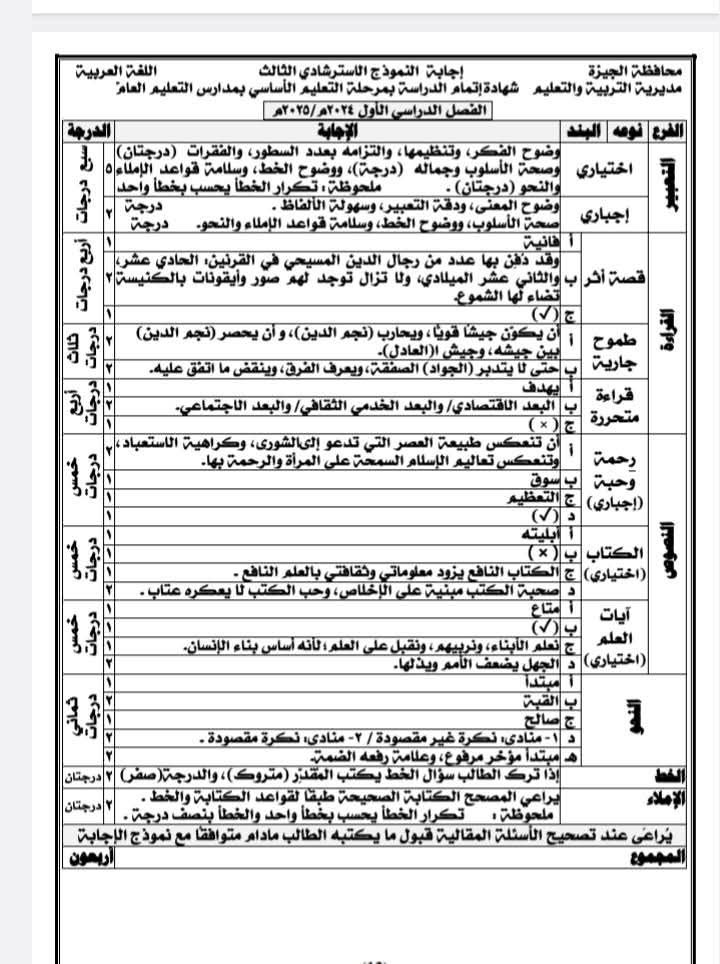 محافظة الجيزة إجابة النموذج الاسترشادي الثالث اللغة العربية
مديرية التربية والتعليم شهادة إتمام الدراسة بمرحلة التعليم الأساسي بمدارس التعليم العام
الفصل الدراسي الأول ٢٠٢٤م/٢٠٢٥م
الفرع نوعه البند الإجابة الدرجة
التعبير
اختياري
وضوح الفكر، وتنظيمها، والتزامه بعدد السطور، والفقرات (درجتان)
وصحة الأسلوب وجماله (درجة)، ووضوح الخط، وسلامة قواعد الإملاء
والنحو (درجتان) . ملحوظة: تكرار الخطأ يحسب بخطأ واحد
٥
سبع درجات
إجباري
وضوح المعنى، ودقة التعبير، وسهولة الألفاظ . درجة
صحة الأسلوب، ووضوح الخط، وسلامة قواعد الإملاء والنحو. درجة
٢
القراءة
قصة أثر
أ فانية ١
ب وقد دُفن بها عدد من رجال الدين المسيحي في القرنين: الحادي عشر،
والثاني عشر الميلادي، ولا تزال توجد لهم صور وأيقونات بالكنيسة ٢
تضاء لها الشموع.
ج (✓) ١
أربع درجات
طموح جارية
أ أن يكوّن جيشًا قويًا، ويحارب (نجم الدين)، و أن يحصر (نجم الدين)
بين جيشه، وجيش ا(العادل). ٢
ب حتى لا يتدبر (الجواد) الصفقة، ويعرف الفرق، وينقض ما اتفق عليه. ١
ثلاث درجات
قراءة متحررة
أ يهدف ١
ب البعد الاقتصادي/ والبعد الخدمي الثقافي/ والبعد الاجتماعي. ٢
ج (×) ١
أربع درجات
النصوص
رحمة وَحبة (إجباري)
أ أن تنعكس طبيعة العصر التي تدعو إلى الشورى، وكراهية الاستعباد، ٢
وتنعكس تعاليم الإسلام السمحة على المرأة والرحمة بها.
ب سوق ١
ج التعظيم ١
د (✓) ١
خمس درجات
الكتاب (اختياري)
أ أبليته ١
ب (×) ١
ج الكتاب النافع يزود معلوماتي وثقافتي بالعلم النافع . ١
د صحبة الكتب مبنية على الإخلاص، وحب الكتب لا يعكره عتاب . ٢
خمس درجات
آيات العلم (اختياري)
أ متاع ١
ب (✓) ١
ج نعلم الأبناء، ونربيهم، ونقبل على العلم؛ لأنه أساس بناء الإنسان. ١
د الجهل يضعف الأمم ويذلها. ٢
خمس درجات
النحو
أ مبتدأ ١
ب القبة ٢
ج صالح ١
د ١- منادى: نكرة غير مقصودة / ٢- منادى: نكرة مقصودة . ٢
هـ مبتدأ مؤخر مرفوع، وعلامة رفعه الضمة. ٢
ثماني درجات
الخط إذا ترك الطالب سؤال الخط يكتب المقدّر (متروك)، والدرجة(صفر) ٢ درجتان
الإملاء يراعي المصحح الكتابة الصحيحة طبقًا لقواعد الكتابة والخط .
ملحوظة : تكرار الخطأ يحسب بخطأ واحد والخطأ بنصف درجة . ٢ درجتان
يُراعَى عند تصحيح الأسئلة المقالية قبول ما يكتبه الطالب مادام متوافقًا مع نموذج الإجابة
المجموع أربعون